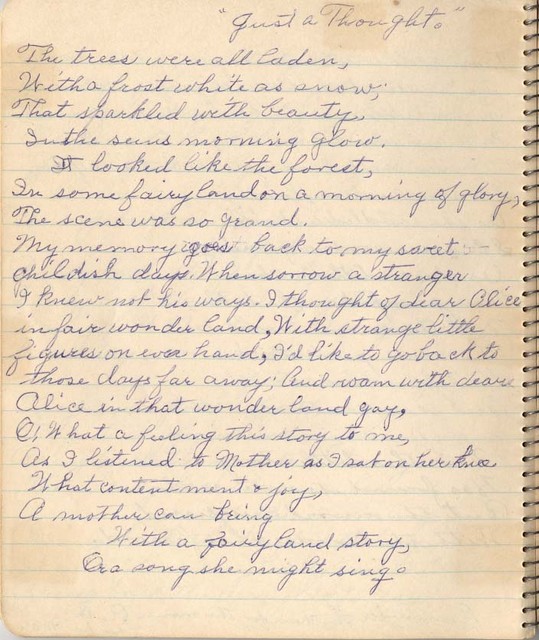 "Just a Thought."
The trees were all laden,
With a frost white as snow;
That sparkled with beauty,
In the suns morning glow.
It looked like the forest,
In some fairyland on a morning of glory,
The scene was so grand.
My memory goes back to my sweet
childish days. When sorrow a stranger
I knew not his ways. I thought of dear Alice
in fair wonder land, With strange little
figures on every hand, I'd like to go back to
those days far away; And roam with dear
Alice in that wonder land gay,
O, What a feeling this story to me,
As I listened to Mother as I sat on her knee
What content ment & joy,
A mother can bring
With a fairyland story,
Or a song she might sing.